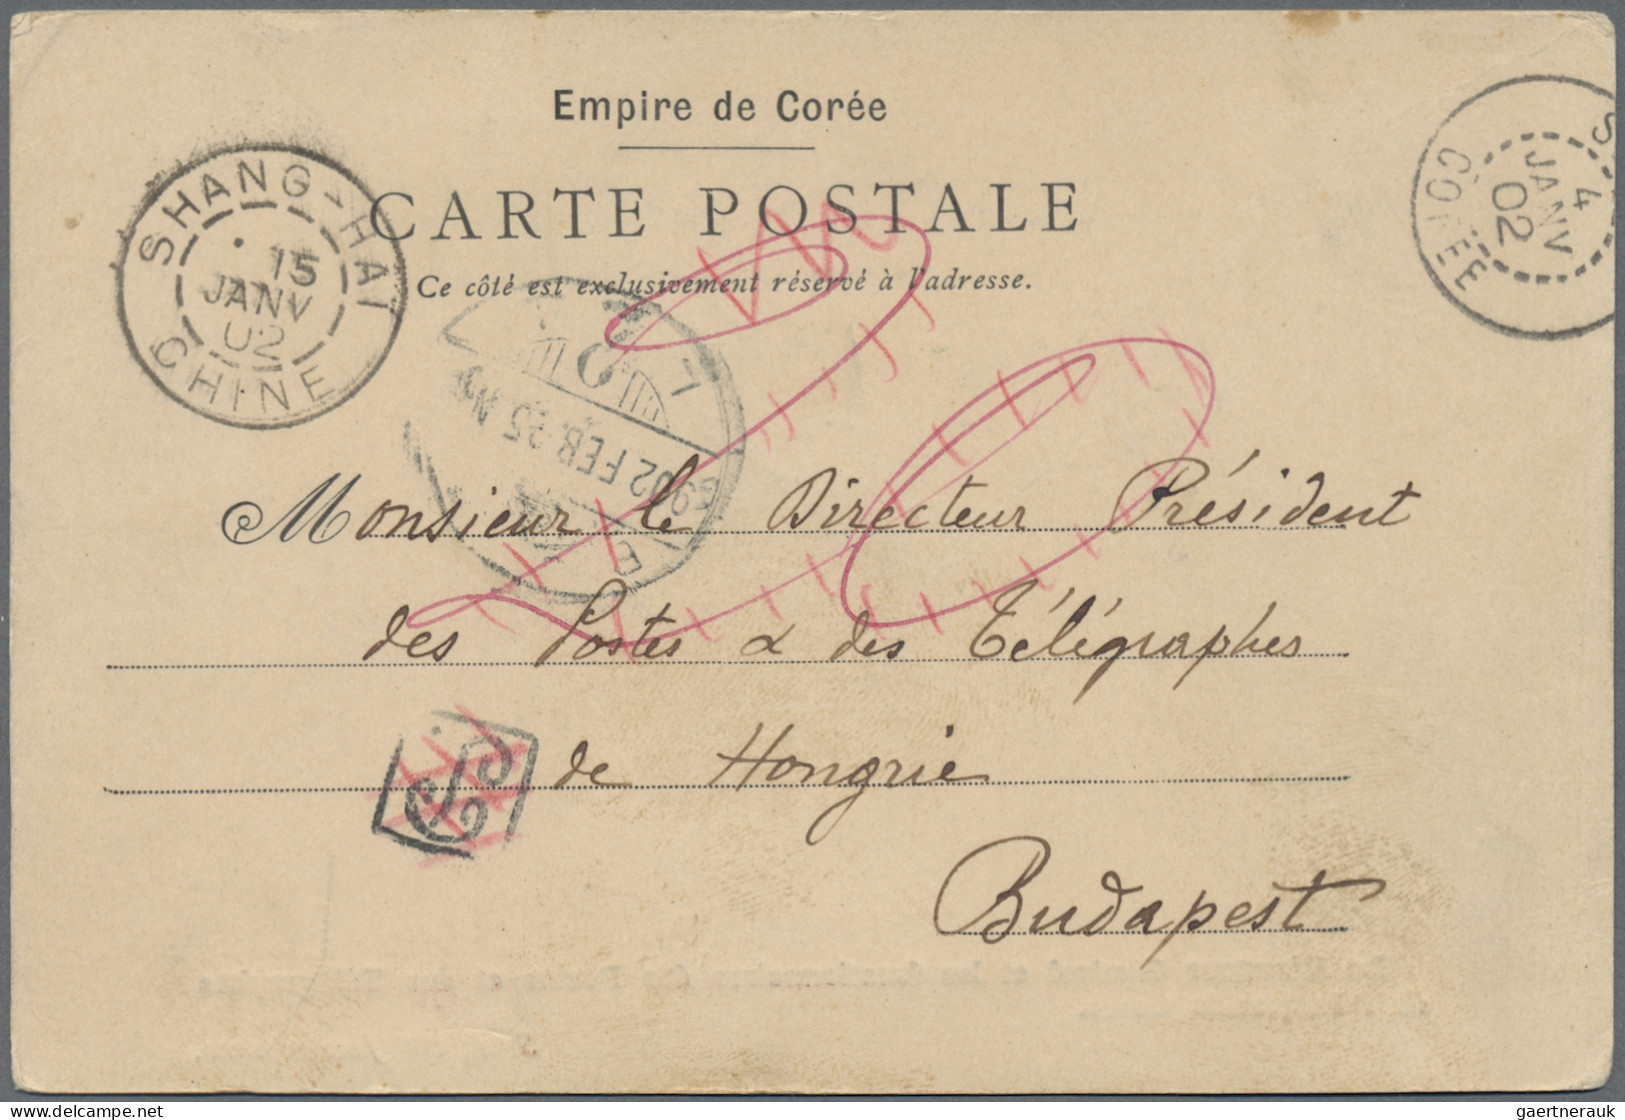 Empire de Corée
CARTE POSTALE
Ce côté est exclusivement réservé à l'adresse.
SHANG-HAI
15
JANV
02
CHINE
S
4
JANV
02
COREE
902 FEB. 25
B
L
Monsieur le Directeur Président
des Postes & des Télégraphes
de Hongrie
Budapest
delcampe.net
gaertnerauk